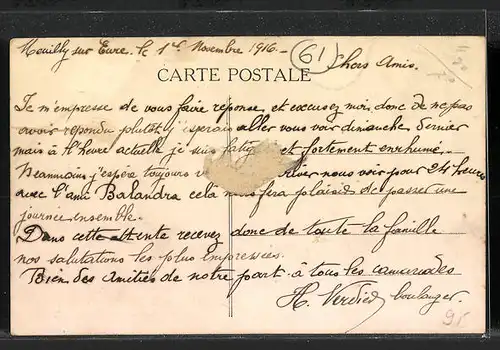 Neuilly sur Eure. le 1er Novembre 1916 -
61
Chers Amis.
CARTE POSTALE
Je m'empresse de vous faire reponse et excusez moi donc de ne pas
avoir repondu plutot j'esperais aller vous voir dimanche dernier
mais à l'heure actuelle je suis fatig et fortement enrhumé.
Neanmoins j'espere toujours nous voir pour 24 heures
avec l'ami Balandra celà nous fera plaisir de passer une
journée ensemble.
Dans cette attente recevez donc de toute la famille
nos salutations les plus empressees.
Bien des amities de notre part à tous les camarades
H. Verdier boulanger.